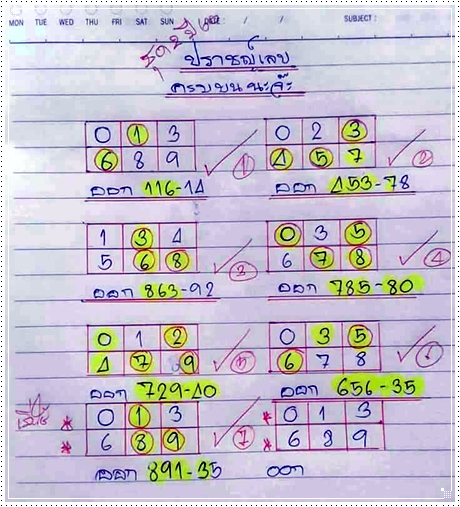 MON TUE WED THU FRI SAT SUN DATE: / / SUBJECT:
ปราชญ์เลข
ครบบนนะจ๊ะ
0 1 3
6 8 9
①
ออก 116-14
0 2 3
4 5 7
②
ออก 453-78
1 3 4
5 6 8
③
ออก 863-92
0 3 5
6 7 8
④
ออก 785-80
0 1 2
4 7 9
⑤
ออก 729-40
0 3 5
6 7 8
⑥
ออก 656-35
* 0 1 3
* 6 8 9
⑦
ออก 891-35
* 0 1 3
* 6 8 9
ออก